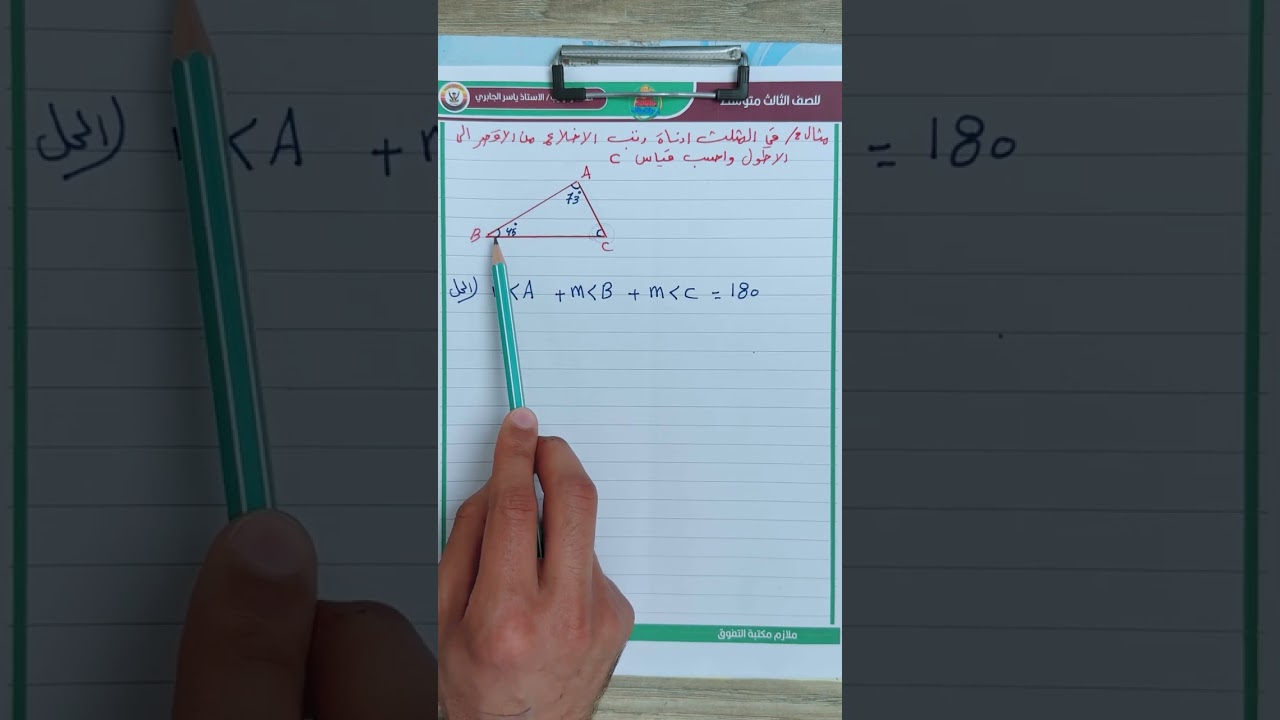 للصف الثالث متوسط
الاستاذ ياسر الجابري
مثال2/ في المثلث ادناة رتب الاضلاع من الاقصر الى
الاطول واحسب قياس C
A
73°
B
45°
C
C
الحل) <A + m<B + m<C = 180
ملازم مكتبة التفوق
الحل) <A +
= 180